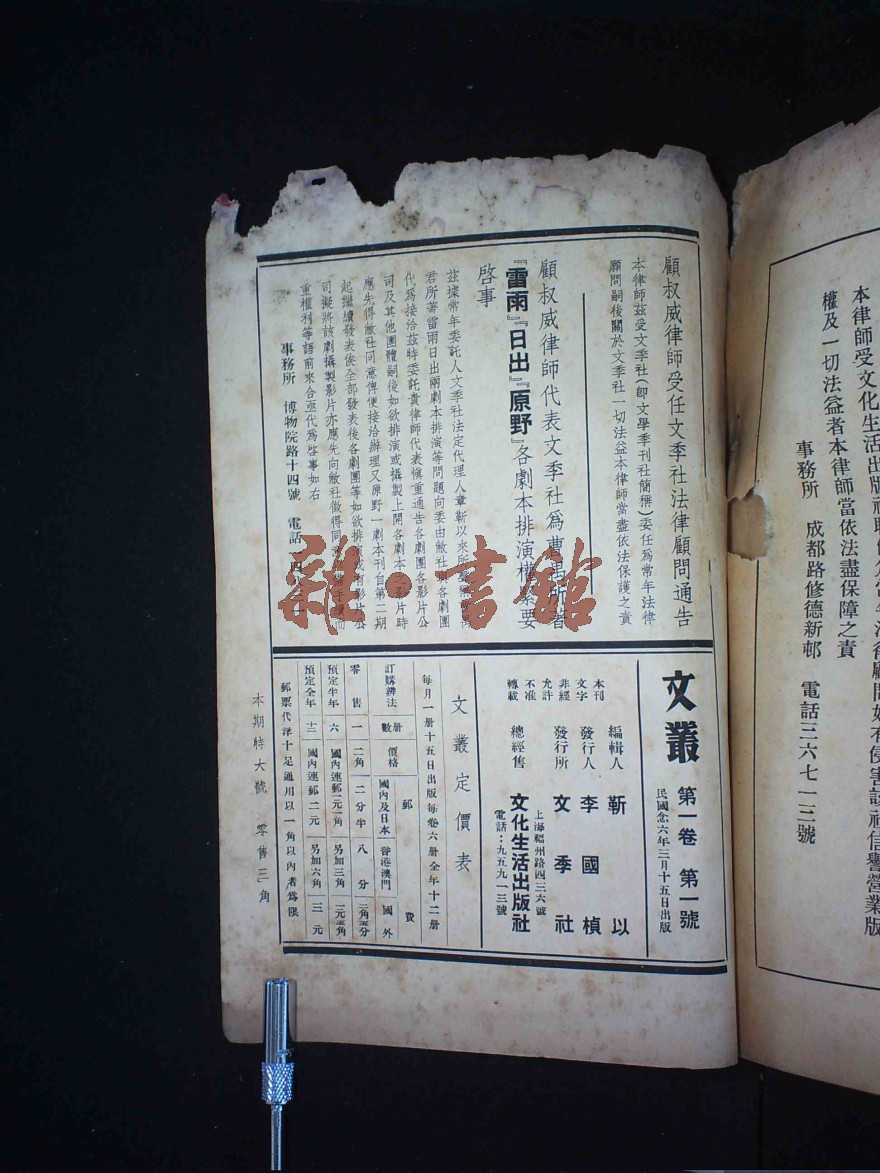 本律師受文化生活出版社聘
權及一切法益者本律師當依法盡保障之責
事務所　成都路修德新邨　電話三六七一三號
顧叔威律師受任文季社法律顧問通告
本律師茲受文季社(卽文學季刊社簡稱)委任爲常年法律
顧問嗣後關於文季社一切法益本律師當盡依法保護之責
顧叔威律師代表文季社爲曹禺所著
『雷雨』『日出』『原野』各劇本排演權業要
啓事
茲據常年委託人文季社法定代理人章靳以來所
君所著雷雨日出兩劇本排演等問題向委由敝社與各劇團
代爲接洽茲特委託貴律師代表愼重通告各劇團各影片公
司及其他團體嗣後如欲排演或攝製上開各劇本之影片時
應先得敝社同意俾便接洽辦理又原野一劇本刊自第二期
起繼續發表俟全部發表後各劇團等如欲排演或有影片公
司擬將該劇攝製影片亦應先向敝社徵得同意
重權利等語前來合亟代爲啓事如右
事務所　博物院路十四號　電話
文叢　第一卷　第一號
民國念六年三月十五日出版
編輯人　靳以
發行人　李國楨
發行所　文季社
上海福州路四三六號
總經售　文化生活出版社
電話：九五九一三號
本刊
文字
非經
允許
不准
轉載
文叢定價表
每月一册十五日出版每卷六册全年十二册
訂購辦法　册數　價格　郵費　國內及日本　香港澳門　國外
零售　一　二角　二分半　八分　二角五分
預定半年　六　國內連郵一元一角　另加三角　一元五角
預定全年　十二　國內連郵二元　另加六角　三元
郵票代洋十足通用以一角以內者爲限
本期特大號　零售三角
雜·書館